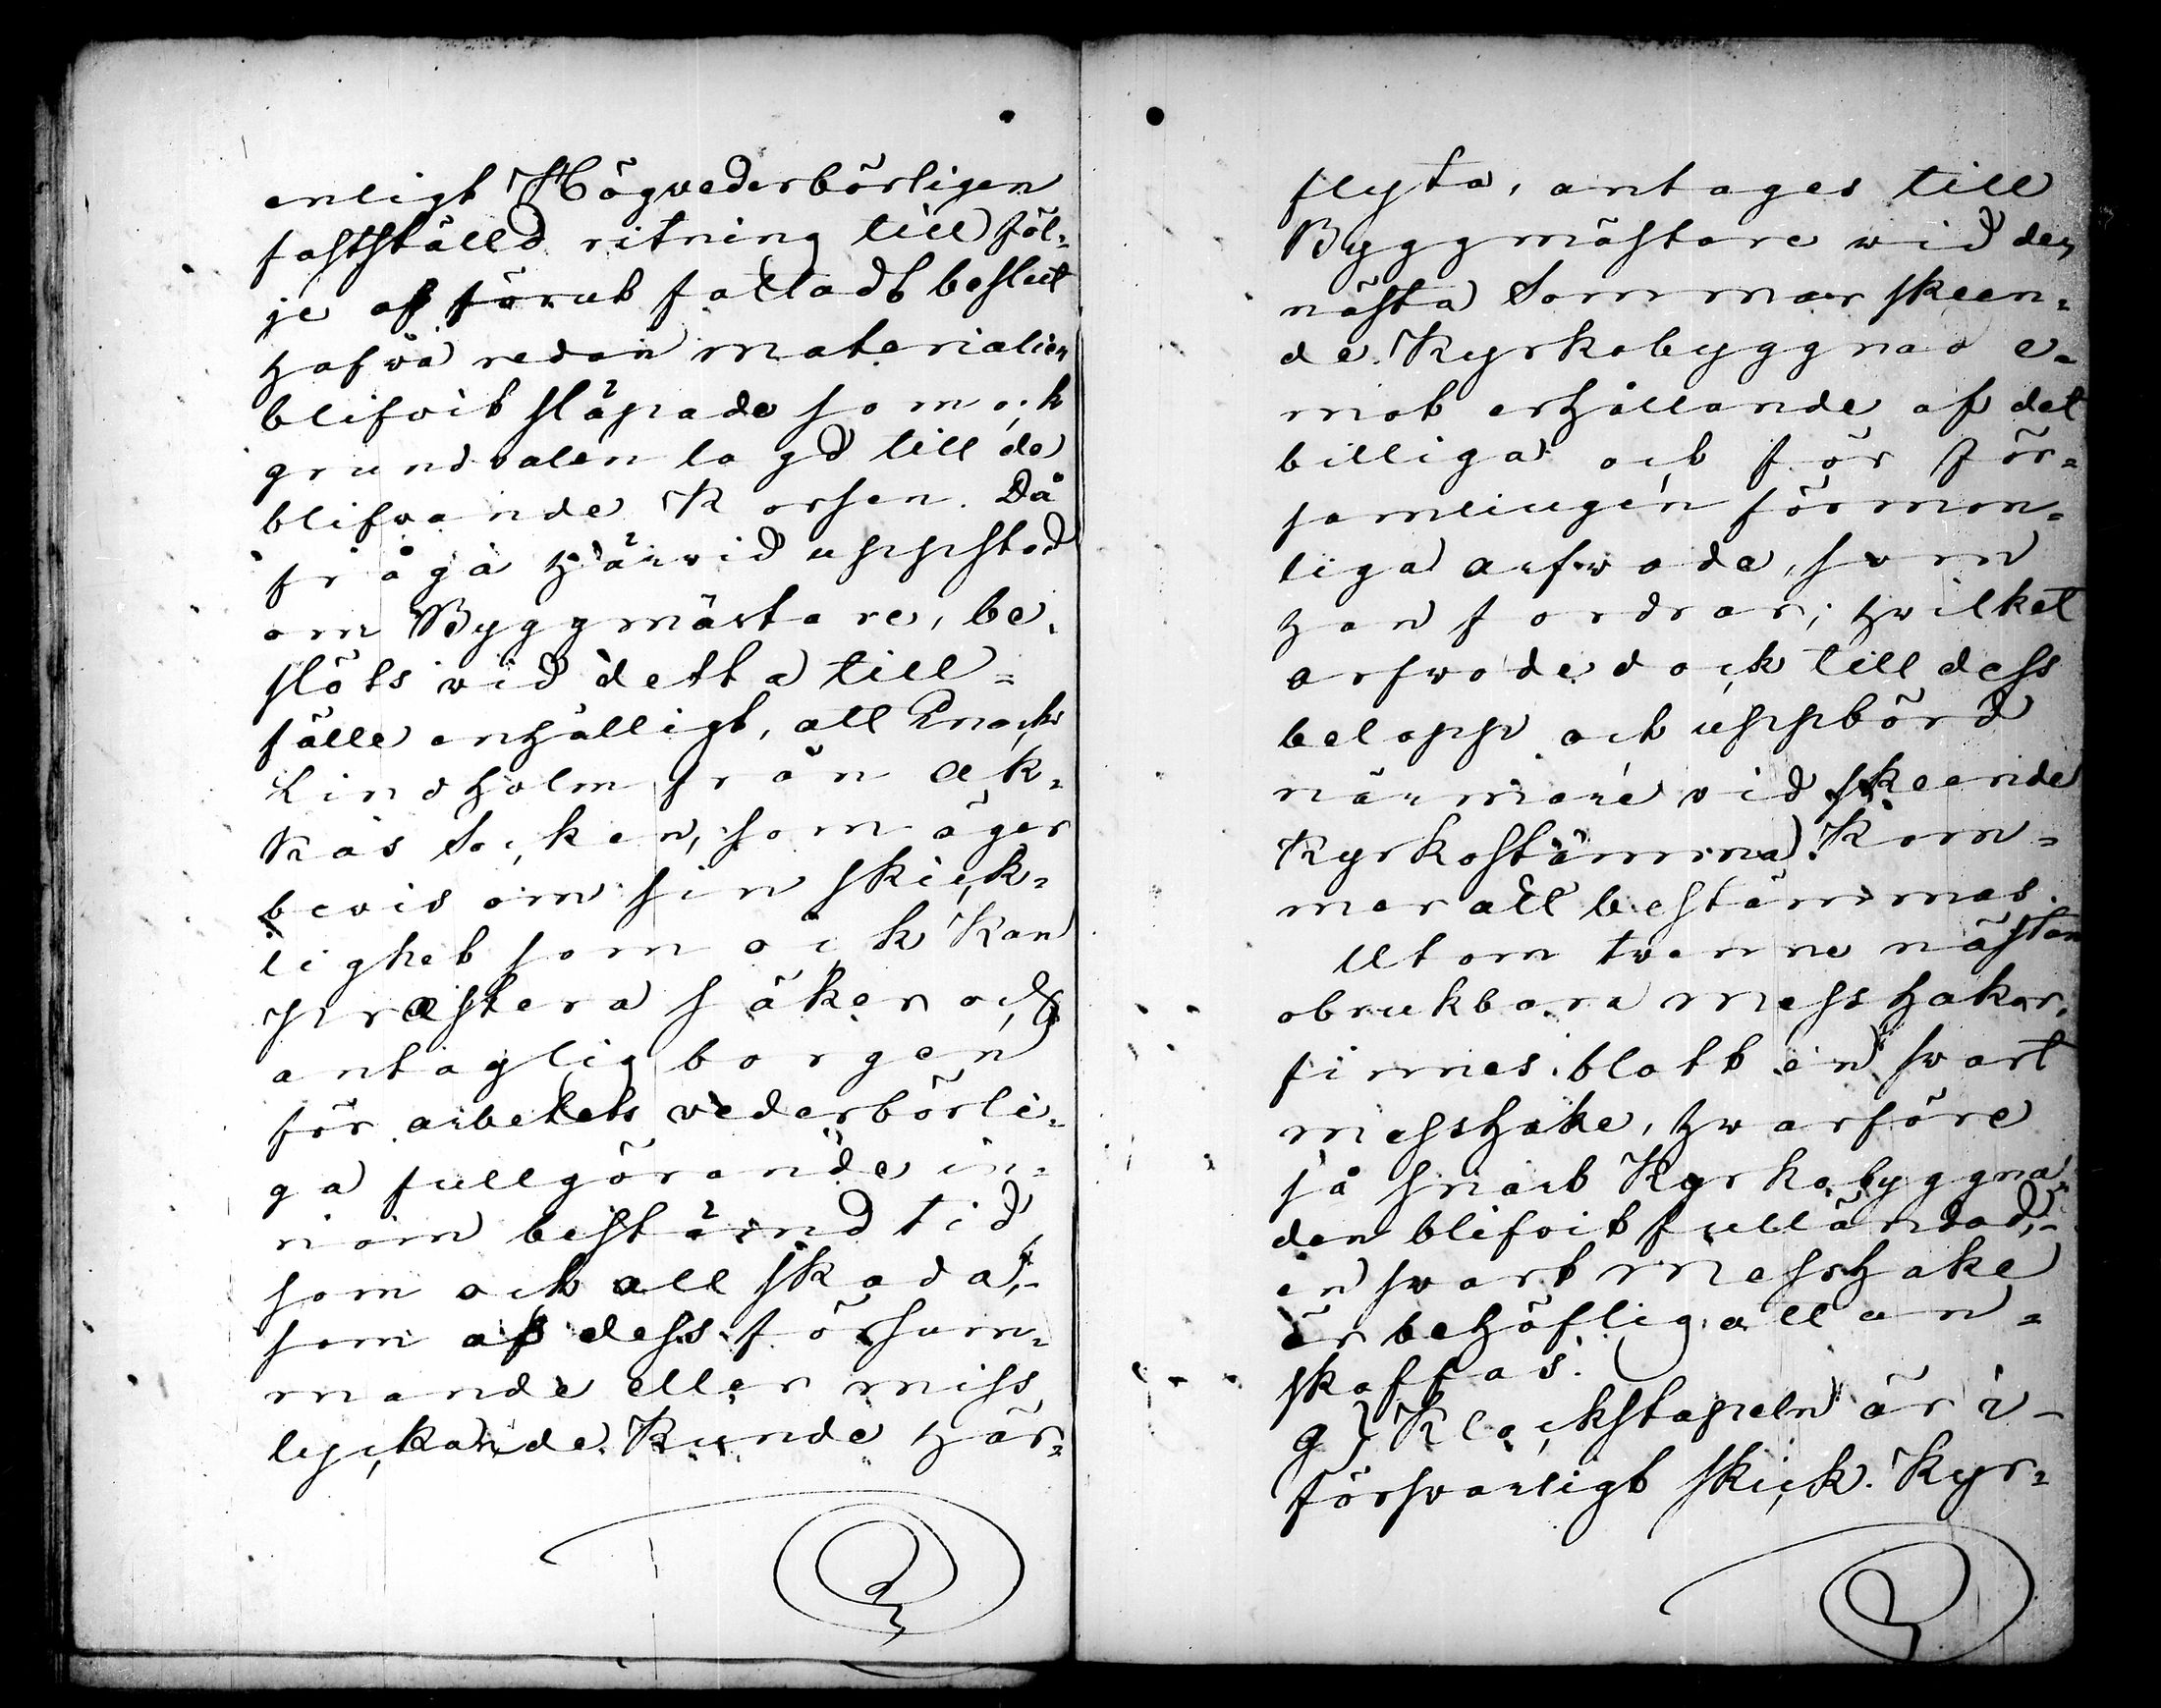 enligt Högvederbörligen
fastställd ritning till föl-
je af förut fattadt beslut
hafva redan materialier
blifvit släpade som ock
grundvalen lagd till de
blifvande Korsen. Då
fråga härvid uppstod
om Byggmästare, be-
slöts vid detta till-
fälle enhälligt, att Enochs
Lindholm från Ak-
kås Socken, som äger
bevis om sin skick-
lighet som ock kan
præstera säker och
antaglig borgen
för arbetets vederbörli-
ga fullgörande in-
nom bestämd tid,
som ock all skada,
som af dess försum-
mande eller miss
lyckande kunde här-
flyta, antages till
Byggmästare wid den
nästa Sommar skeen-
de Kyrkobyggnad e-
mot erhållande af det
billiga och för För-
samlingen förmon-
liga arfwode, som
han fordrar; hwilket
arfwode dock till dess
belopp och uppbörd
närmare vid skeende
Kyrkostämma Kom-
mer att bestämmas.
Utom twenne nästan
obrukbara messhakar,
finnes blott en swart
messhake, hwarföre
så snart Kyrkobyggna
den blifvit fulländad,
en swart messhake
är behöflig att an-
skaffas.
g) Klockstapeln är i
försvarligt skick. Kyr-